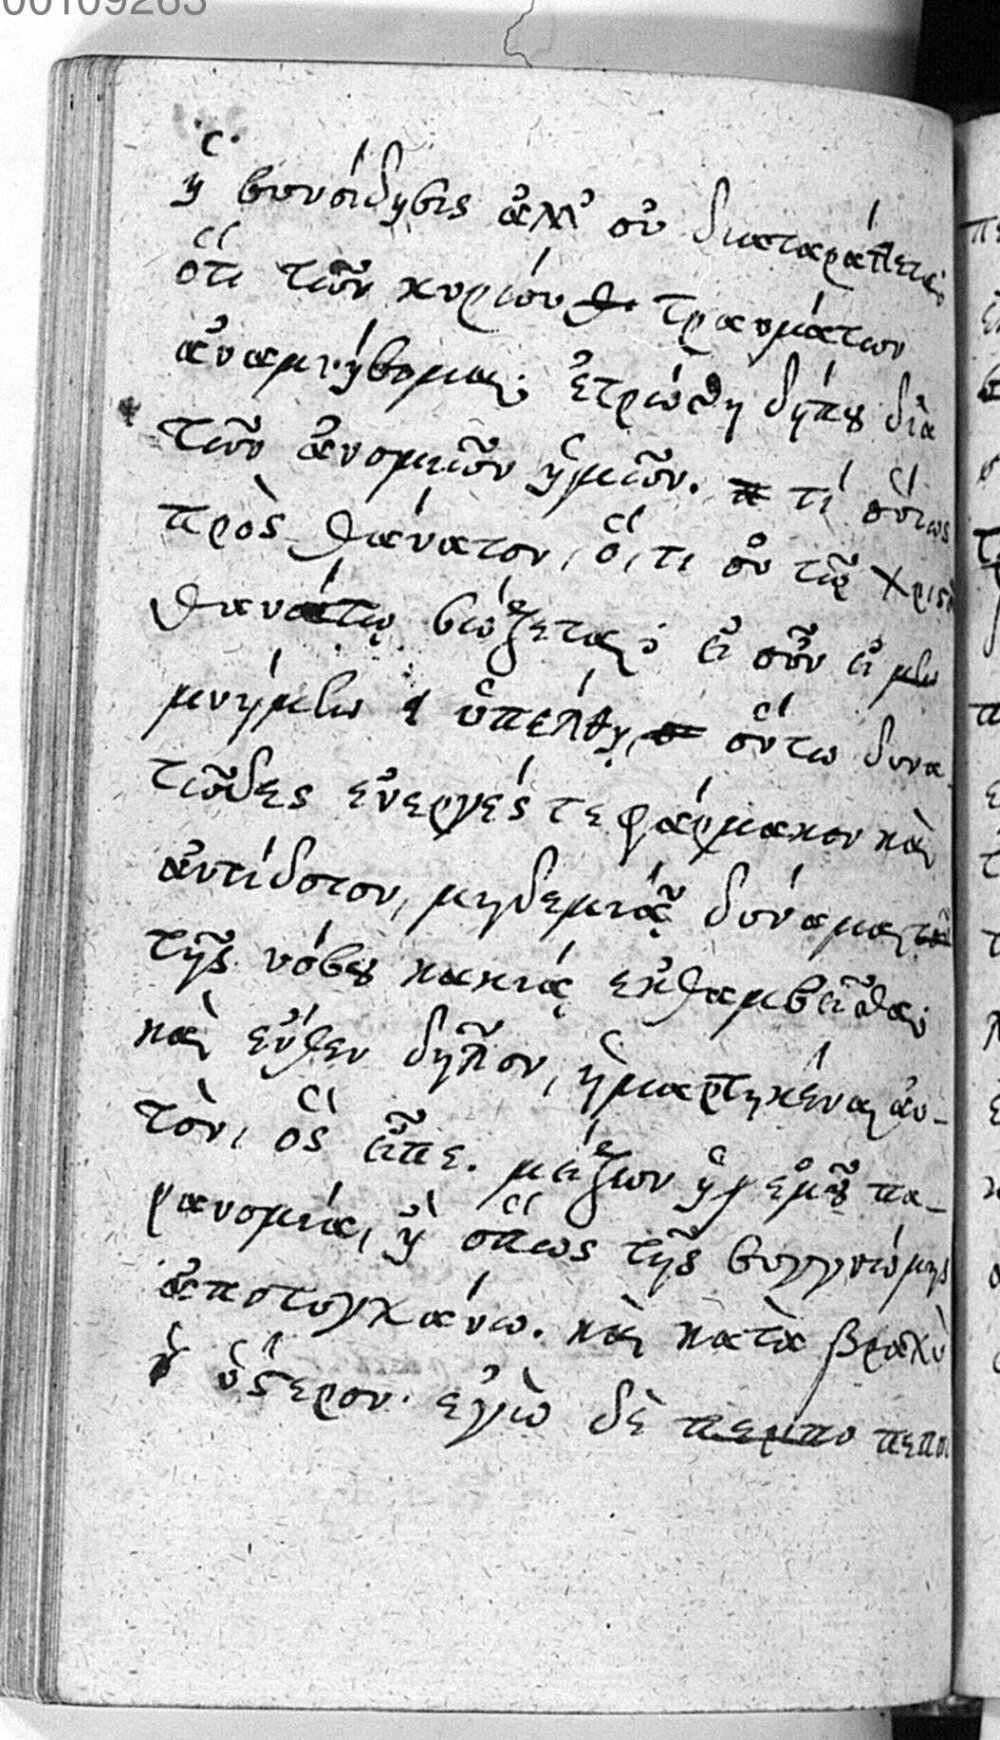 00109263
ἡ συνείδησις ἀλλ' οὐ διαταράττεται
ὅτι τῶν κυρίου τραυμάτων
ἀναμνήσομαι. ἐτρώθη δήπου διὰ
τῶν ἀνομιῶν ἡμῶν. τί οὕτως
πρὸς θάνατον, ὅ, τι οὐ τῷ Χριστοῦ
θανάτῳ σώζεται; εἰ οὖν εἰ μὴν
μνήμην ὑπέλθῃ, οὕτω δυνα
τῶδες ἐνεργές τε φάρμακον καὶ
ἀντίδοτον, μηδεμιᾷ δύναμαι
τῆς νόσου κακίᾳ ἐκθαμβεῖσθαι
καὶ ἔνθεν δῆλον, ἡμαρτηκέναι αὐ-
τὸν, ὃς εἶπε. μείζων ἡ ἐμοῦ πα-
ρανομία, ἢ ὅπως τῆς συγγνώμης
ἀποτυγχάνω. καὶ κατὰ βραχὺ
ὕστερον. ἐγὼ δὲ πεμπο πεποι